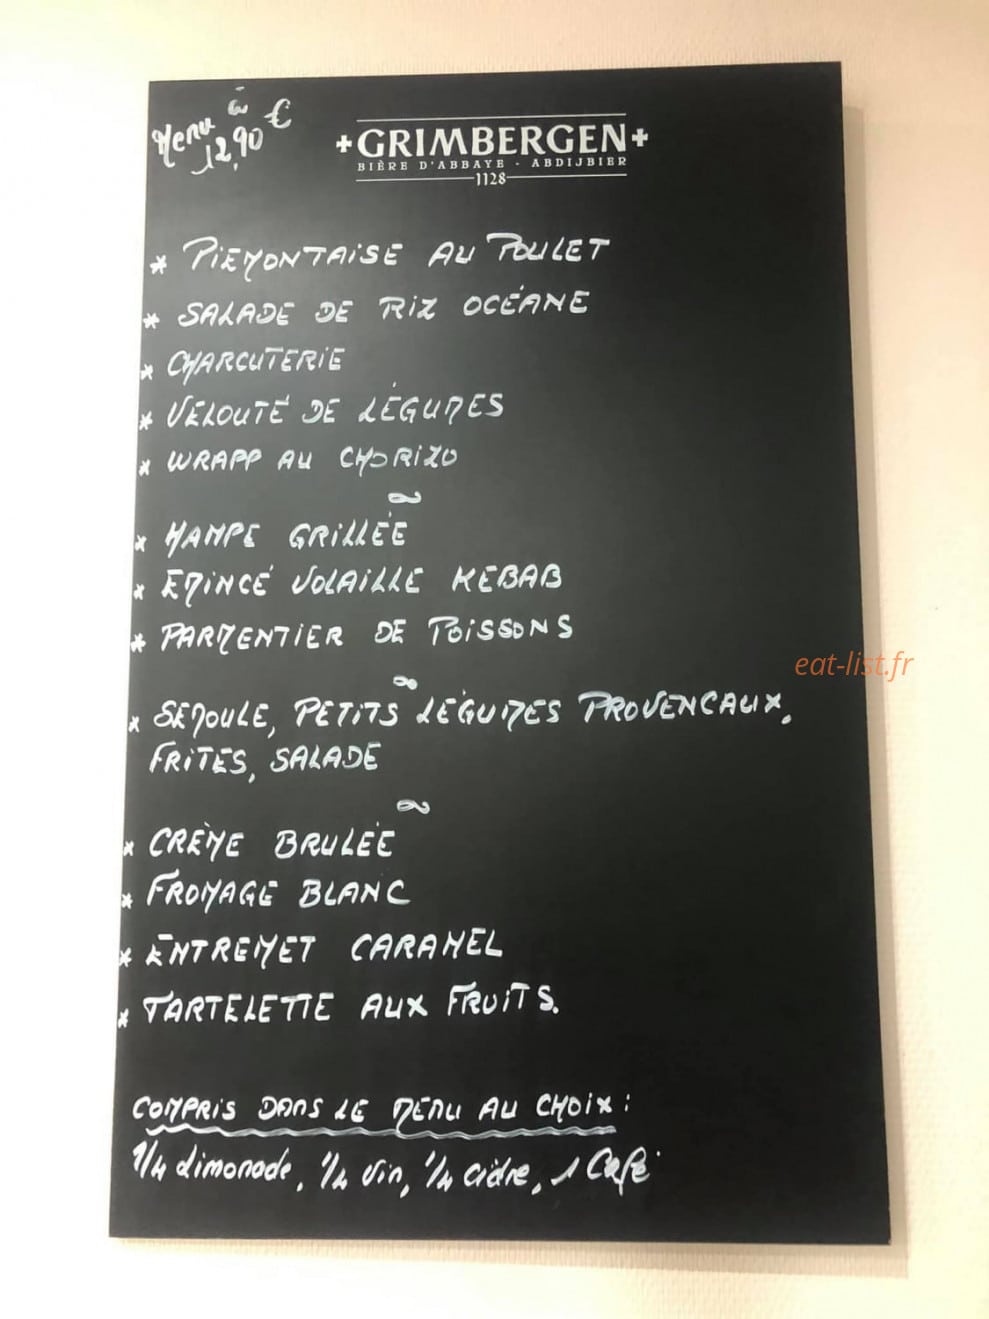 Menu à
12,90 €
GRIMBERGEN
BIÈRE D'ABBAYE · ABDIJBIER
1128
* PIEMONTAISE AU POULET
* SALADE DE RIZ OCÉANE
* CHARCUTERIE
* VELOUTÉ DE LÉGUMES
* WRAPP AU CHORIZO
* HAMPE GRILLÉE
* EMINCÉ VOLAILLE KEBAB
* PARMENTIER DE POISSONS
eat-list.fr
* SEMOULE, PETITS LÉGUMES PROVENCAUX,
FRITES, SALADE
* CRÈME BRULÉE
* FROMAGE BLANC
* ENTREMET CARAMEL
* TARTELETTE AUX FRUITS.
COMPRIS DANS LE MENU AU CHOIX :
1/4 limonade, 1/4 vin, 1/4 cidre, 1 Café